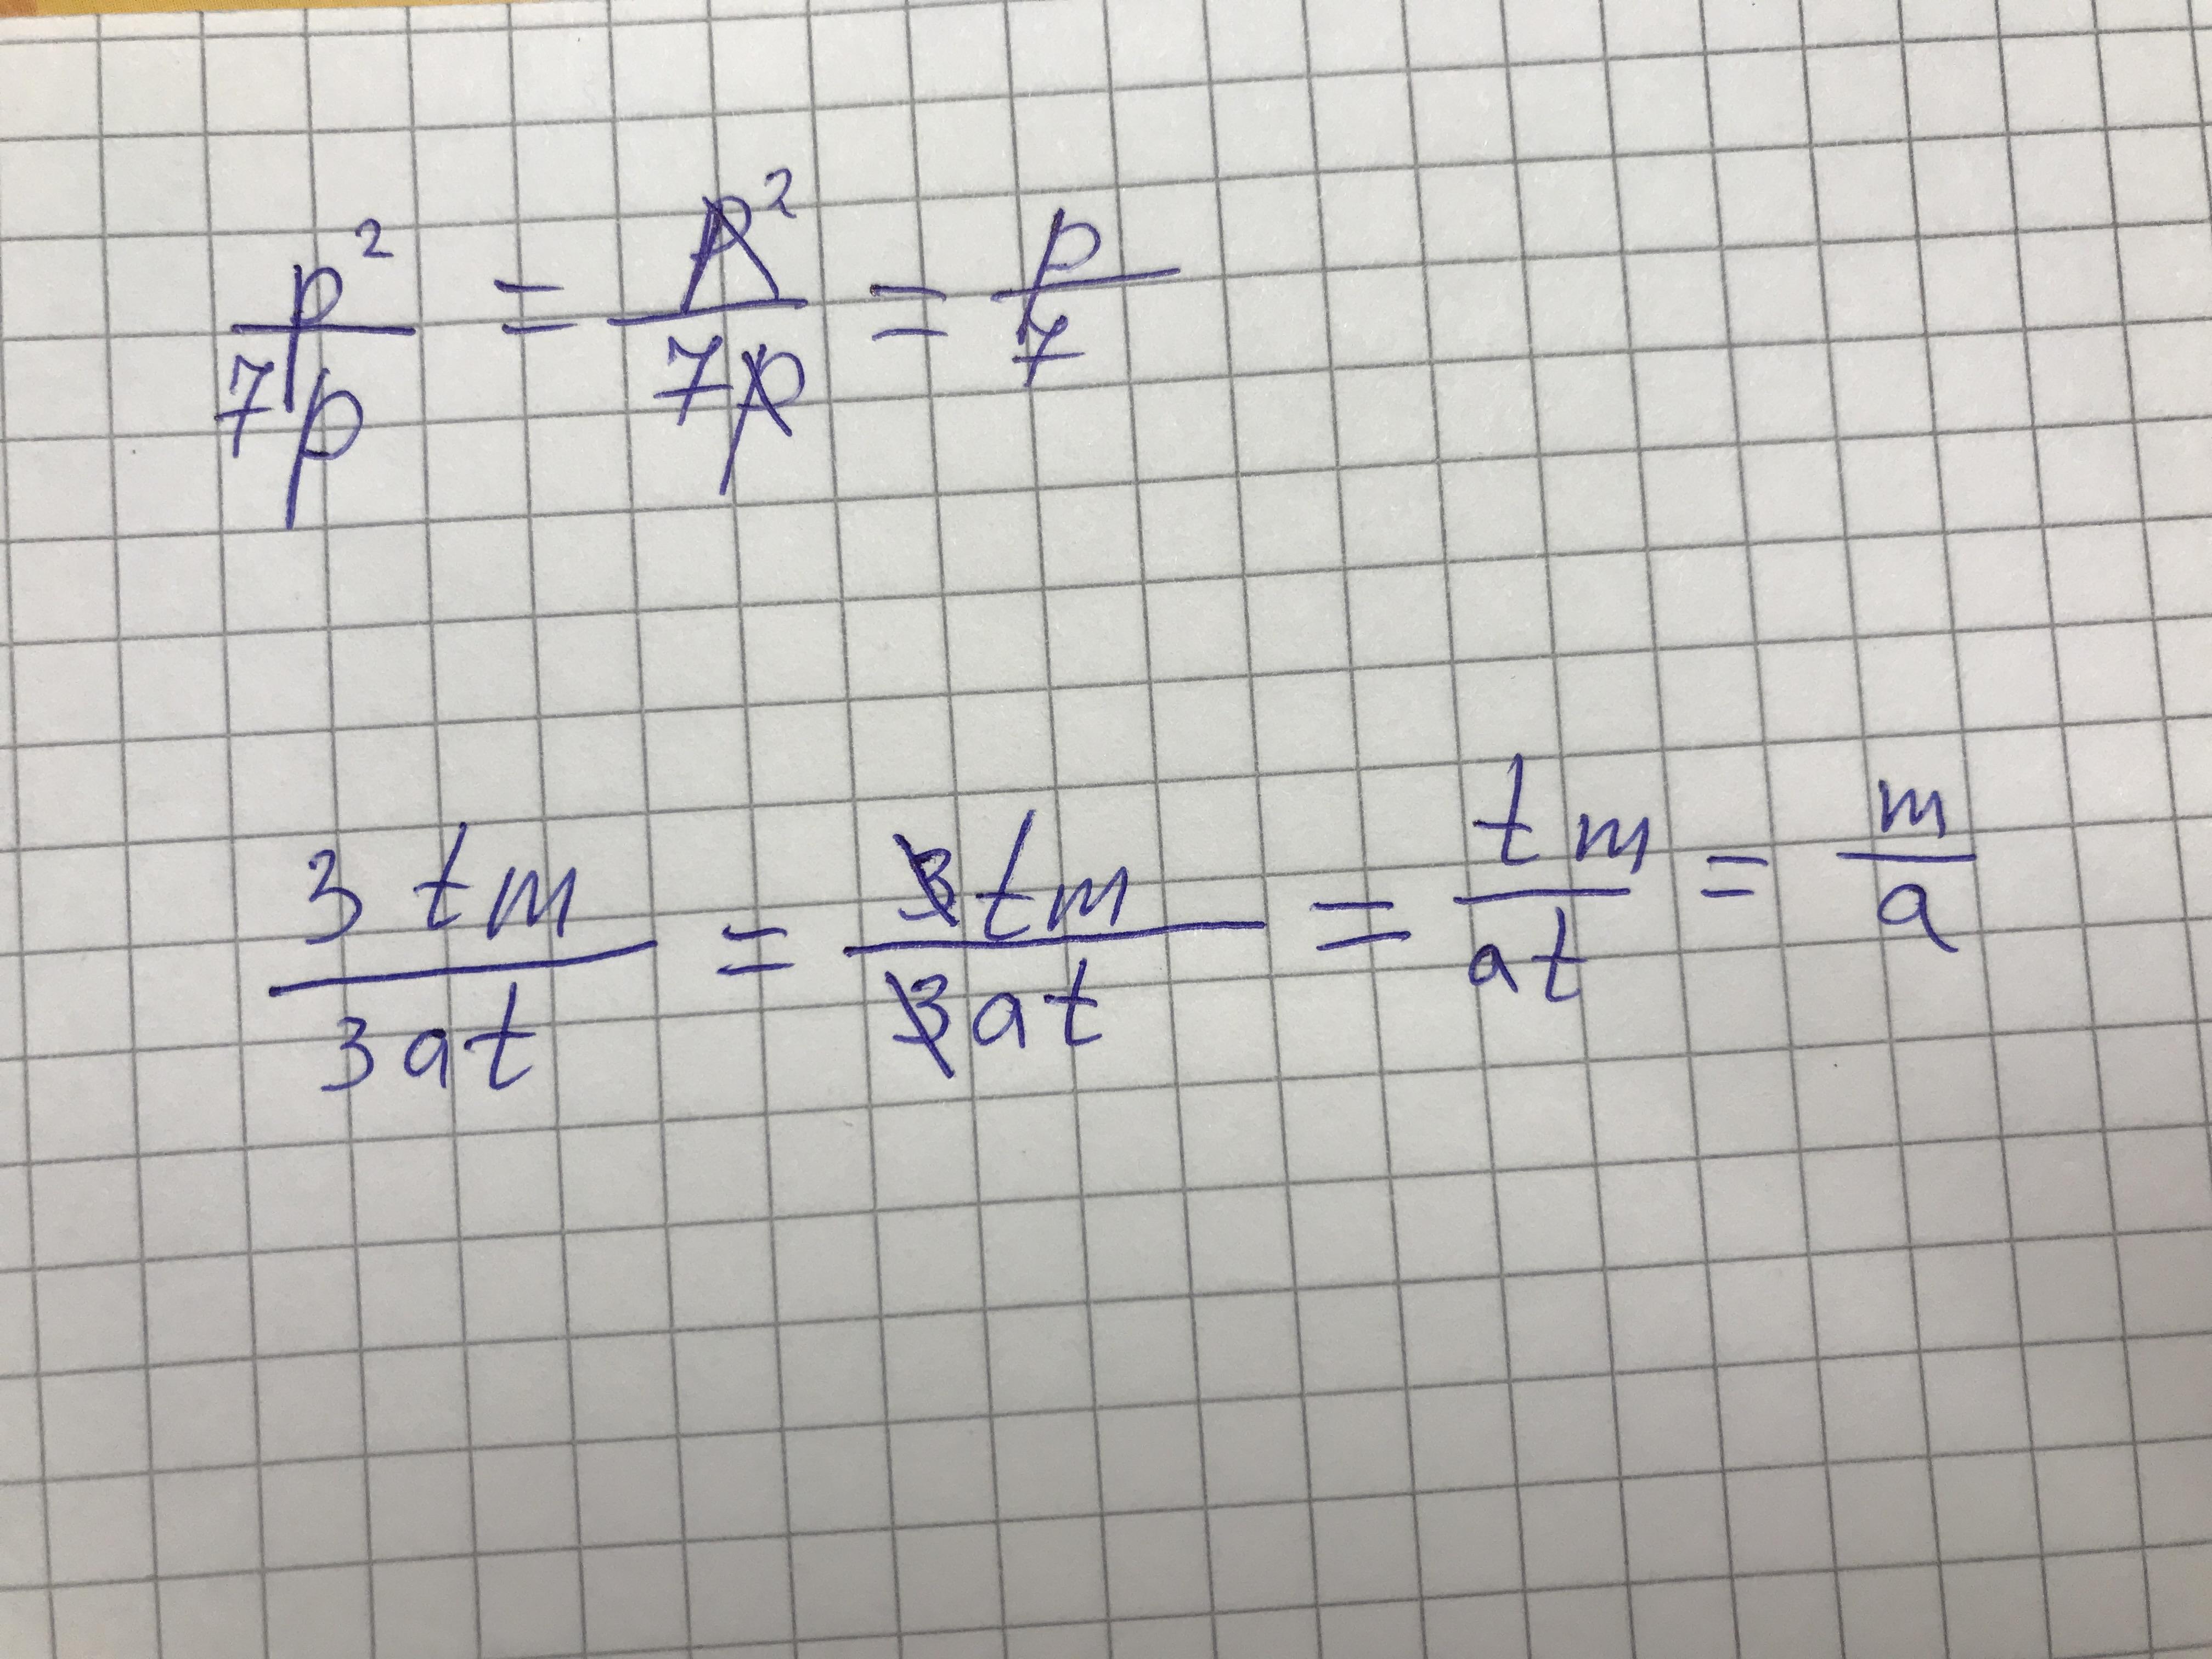 p²/7p = p²/7p = p/7
3tm/3at = 3tm/3at = tm/at = m/a